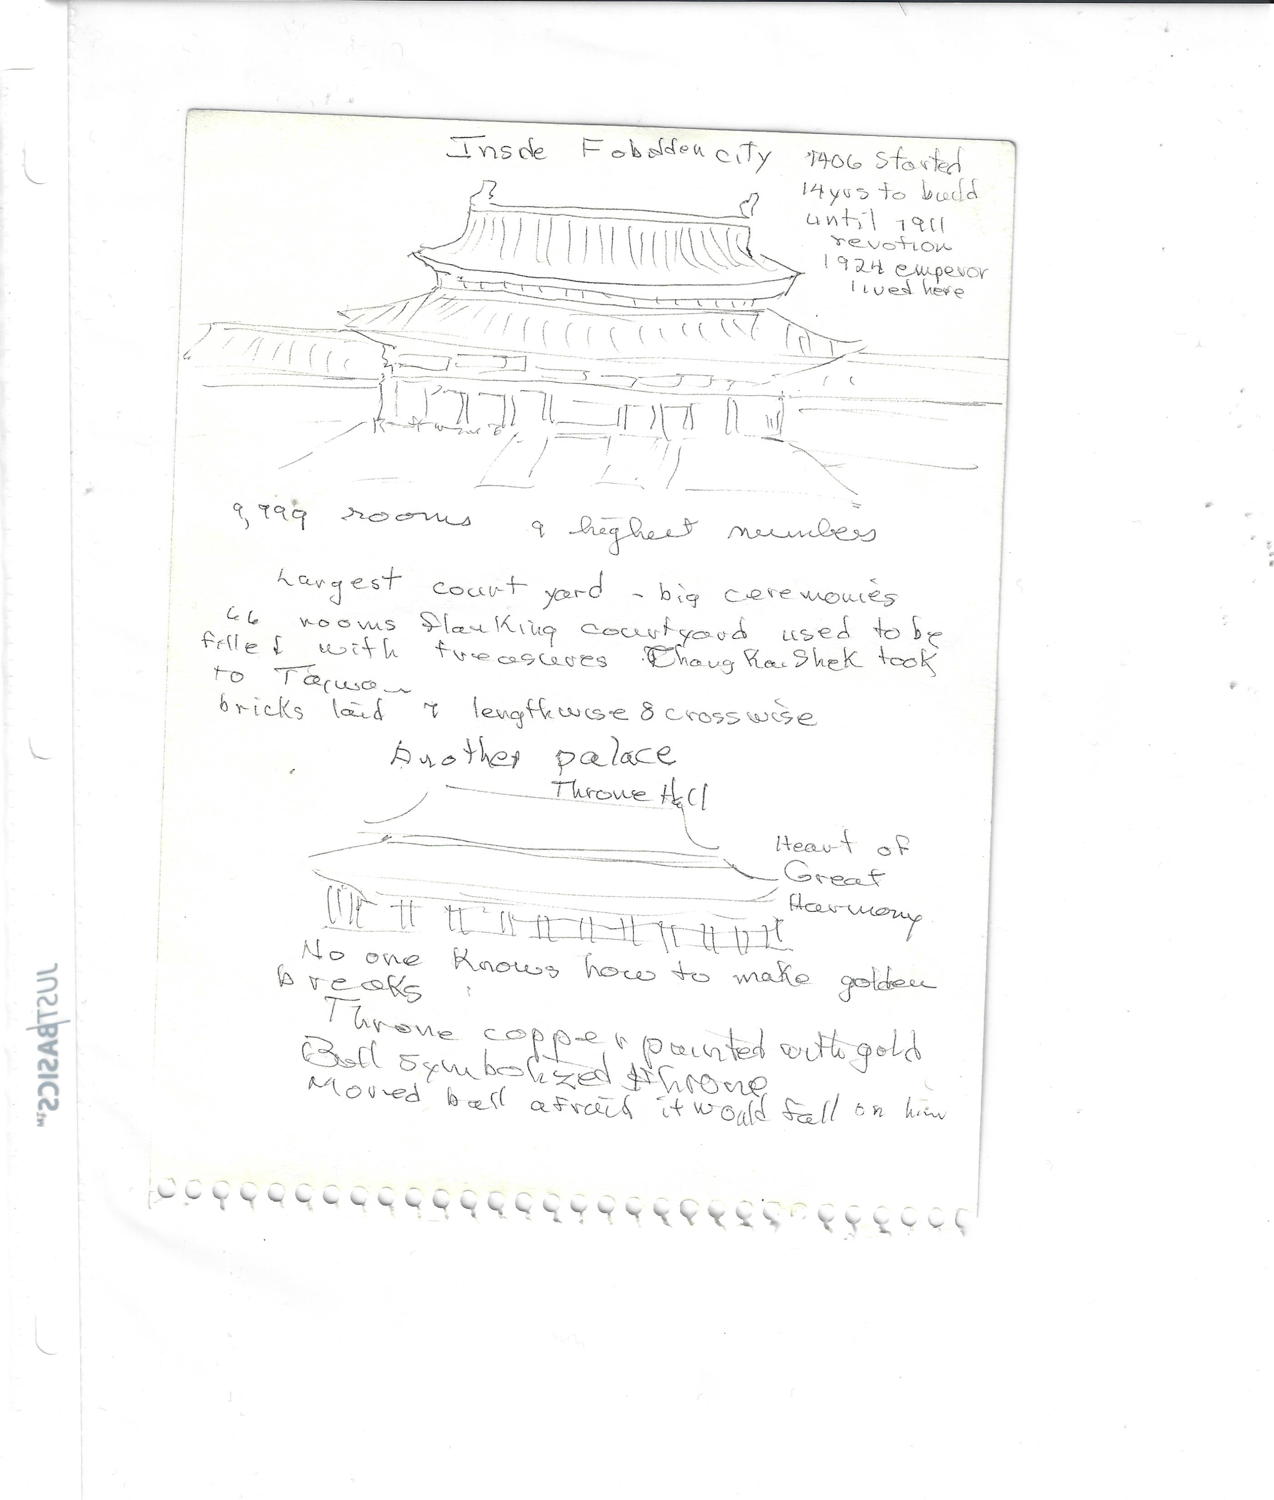 Insde Fobdden city
1406 Started
14 yrs to budd
until 1911
revotion
1924 emperor
lived here
9,999 rooms 9 highest numbers
Largest court yard - big ceremonies
66 rooms flanking courtyard used to be
filled with treasures Chang Kai Shek took
to Taiwan
bricks laid 7 lengthwise 8 crosswise
Another palace
Throne Hall
Heart of
Great
Harmony
No one knows how to make golden
breaks
Throne copper painted with gold
Ball symbolized throne
Moved ball afraid it would fall on him
JUSTBASICS™